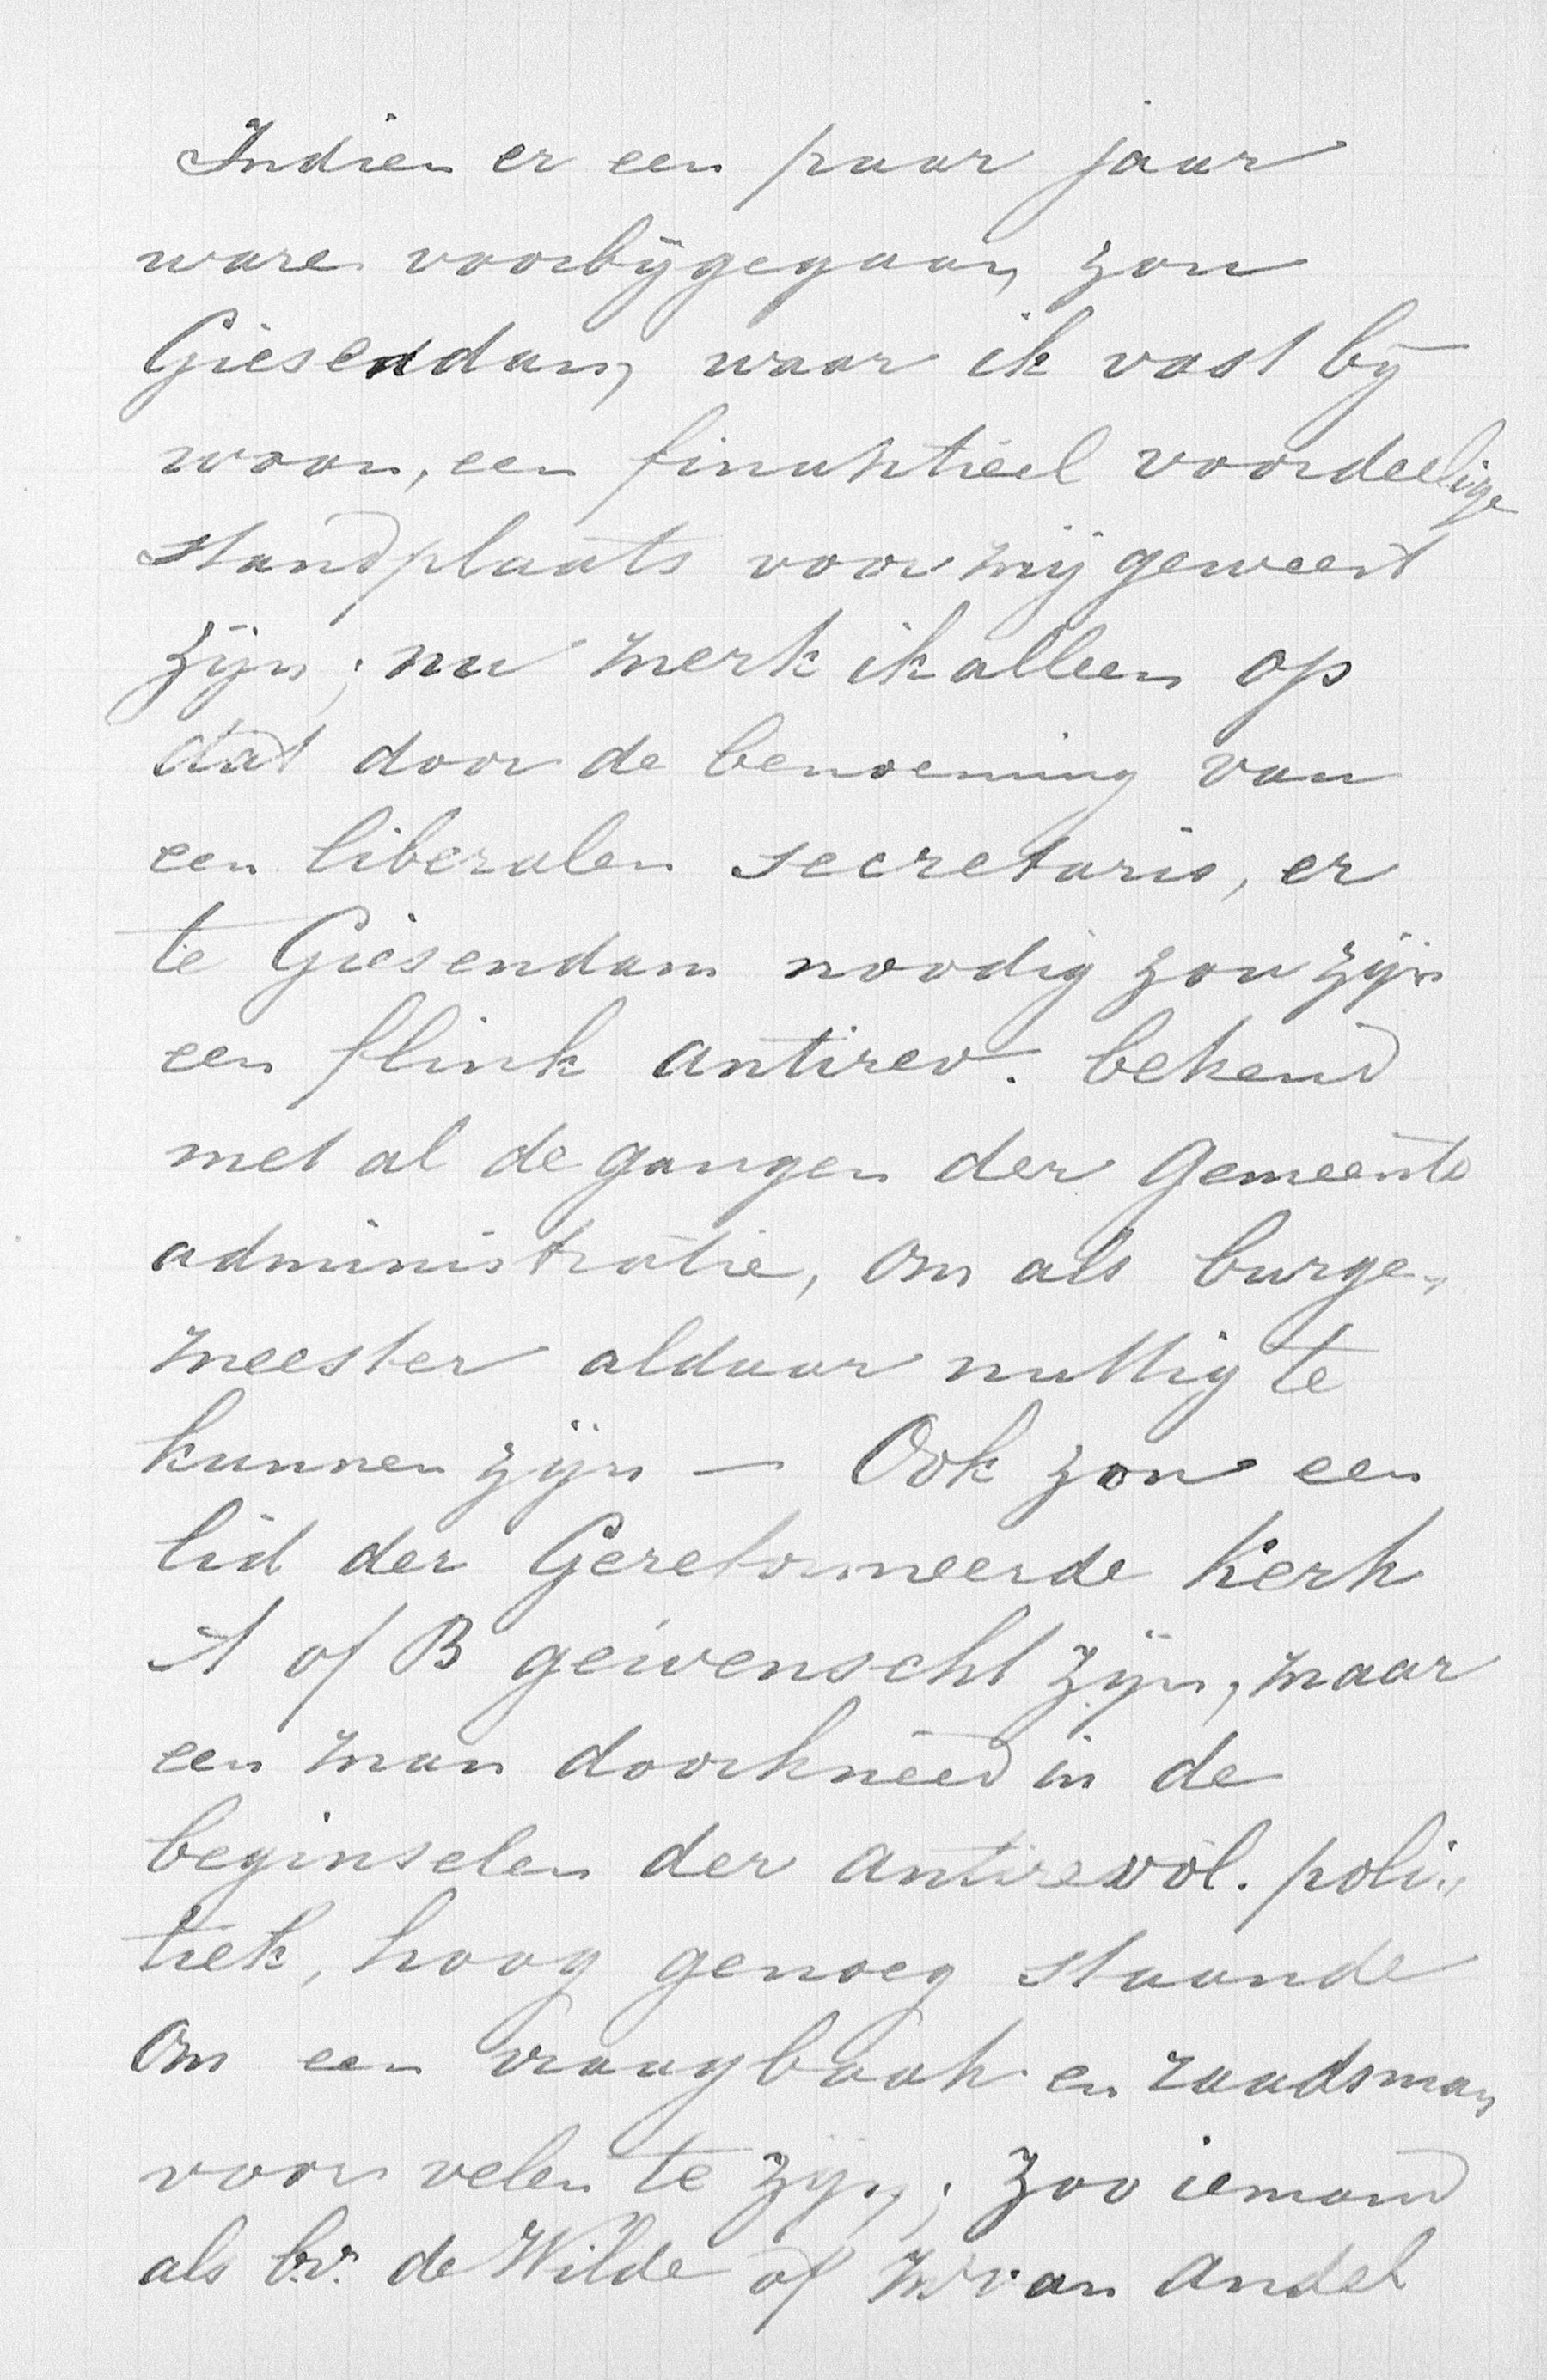 Indien er een paar jaar
ware voorbijgegaan, zou
Giesendam, waar ik vast bij
woon, een finantieel voordeelige
standplaats voor mij geweest
zijn; nu merk ik alleen op
dat door de benoeming van
een liberalen secretaris, er
te Giesendam noodig zou zijn
een flink antirev. bekend
met al de gangen der Gemeente
administratie, om als burge„
meester aldaar nuttig te
kunnen zijn — Ook zou een
lid der Gereformeerde Kerk
A of B gewenscht zijn, maar
een man doorkneed in de
beginselen der antirevol. poli„
tiek, hoog genoeg staande
om een vraagbaak en raadsman
voor velen te zijn; zoo iemand
als bv. de Wilde of van Andel